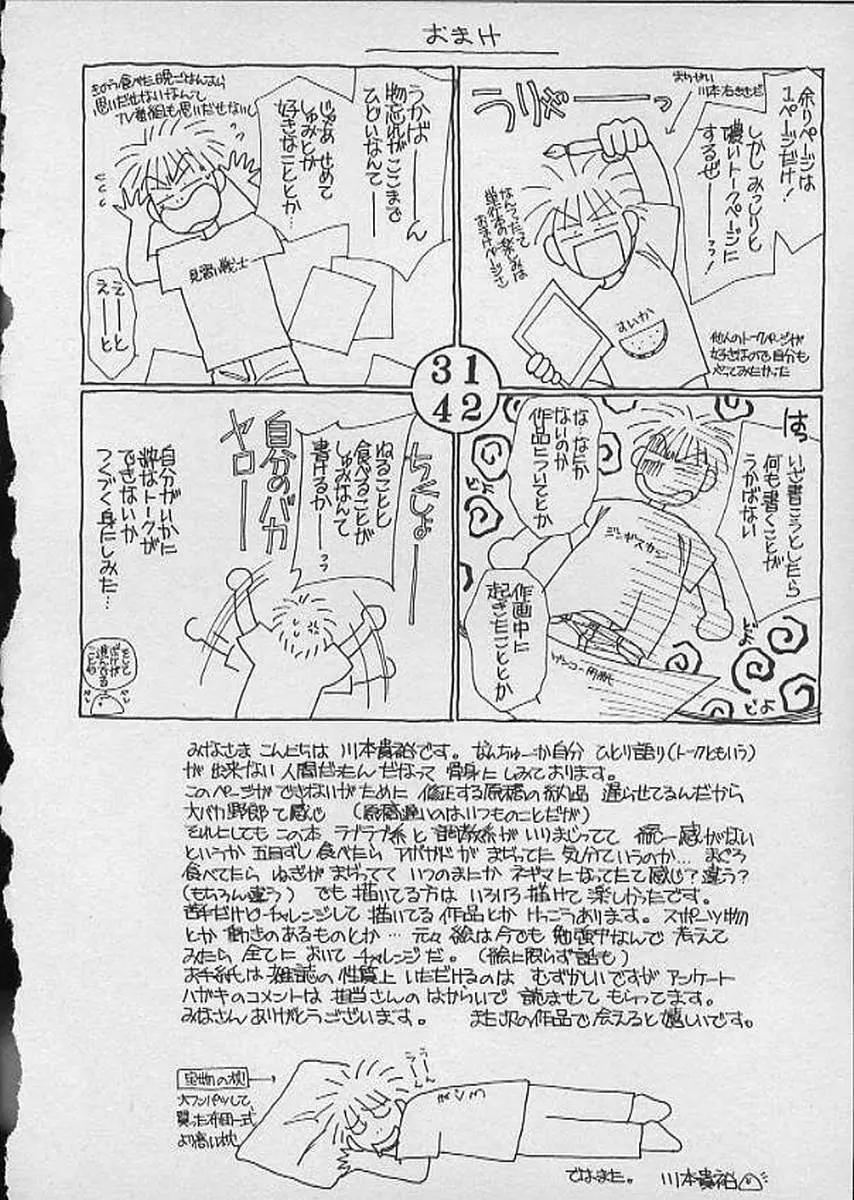 おまけ
余りページは
1ページだけ!
しかしみっしりと
濃いトークページに
するぜ──っ!
うりゃ──っ
川本右ききだ
なんつったって
単行本の楽しみは
おまけページさ
すいか
他人のトークページが
好きなので自分も
やってみたかった
1
はっ
いざ書こうとしたら
何も書くことが
うかばない
な…なにか
ないのか
作品についてとか
作画中に
起きたこととか
ジンギスカン
どよ
どよ
2
うかば──ん
物忘れがここまで
ひどいなんて──
じゃあせめて
しゅみとか
好きなこととか…
きのう食べた晩ごはんすら
思いだせないなんて
TV番組も思いだせないし
見習い戦士
え──と
え──と
3
ちくしょ──
ねることと
食べることが
しゅみなんて
書けるか──っっ
自分のバカ
ヤロ──
自分がいかに
粋なトークが
できないか
つくづく身にしみた…
4
みなさま こんにちは 川本貴裕です。なんちゅーか自分 ひとり語り(トークともいう)
が 出来ない 人間だったんだなって 骨身に しみております。
このページが できないがために 修正する原稿の納品 遅らせてるんだから
大バカ野郎って感じ (原稿遅いのはいつものことだが)
それにしても この本 ラブラブ系と 調教系が いりまじってて 統一感がない
というか 五目ずし 食べたら アボガドが まざってた 気分ていうのか… まぐろ
食べてたら ねぎが まざってて いつのまにか ネギマに なってたって感じ?違う?
(もちろん違う) でも 描いてる方は いろいろ 描けて 楽しかったです。
苦手だけど チャレンジして 描いてる 作品とか けっこうあります。スポーツ物
とか 動きのあるものとか… 元々 絵は今でも 勉強中なんで 考えて
みたら 全てに おいて チャレンジだ。 (絵に限らず話も)
お手紙は 雑誌の 性質上 いただけるのは むずかしいですが アンケート
ハガキのコメントは 担当さんの はからいで 読ませて もらってます。
みなさん ありがとうございます。 また次の作品で 会えると 嬉しいです。
宝物の枕
大フンパツして
買った布団一式
より高い枕
うーん
ではまた。 川本貴裕